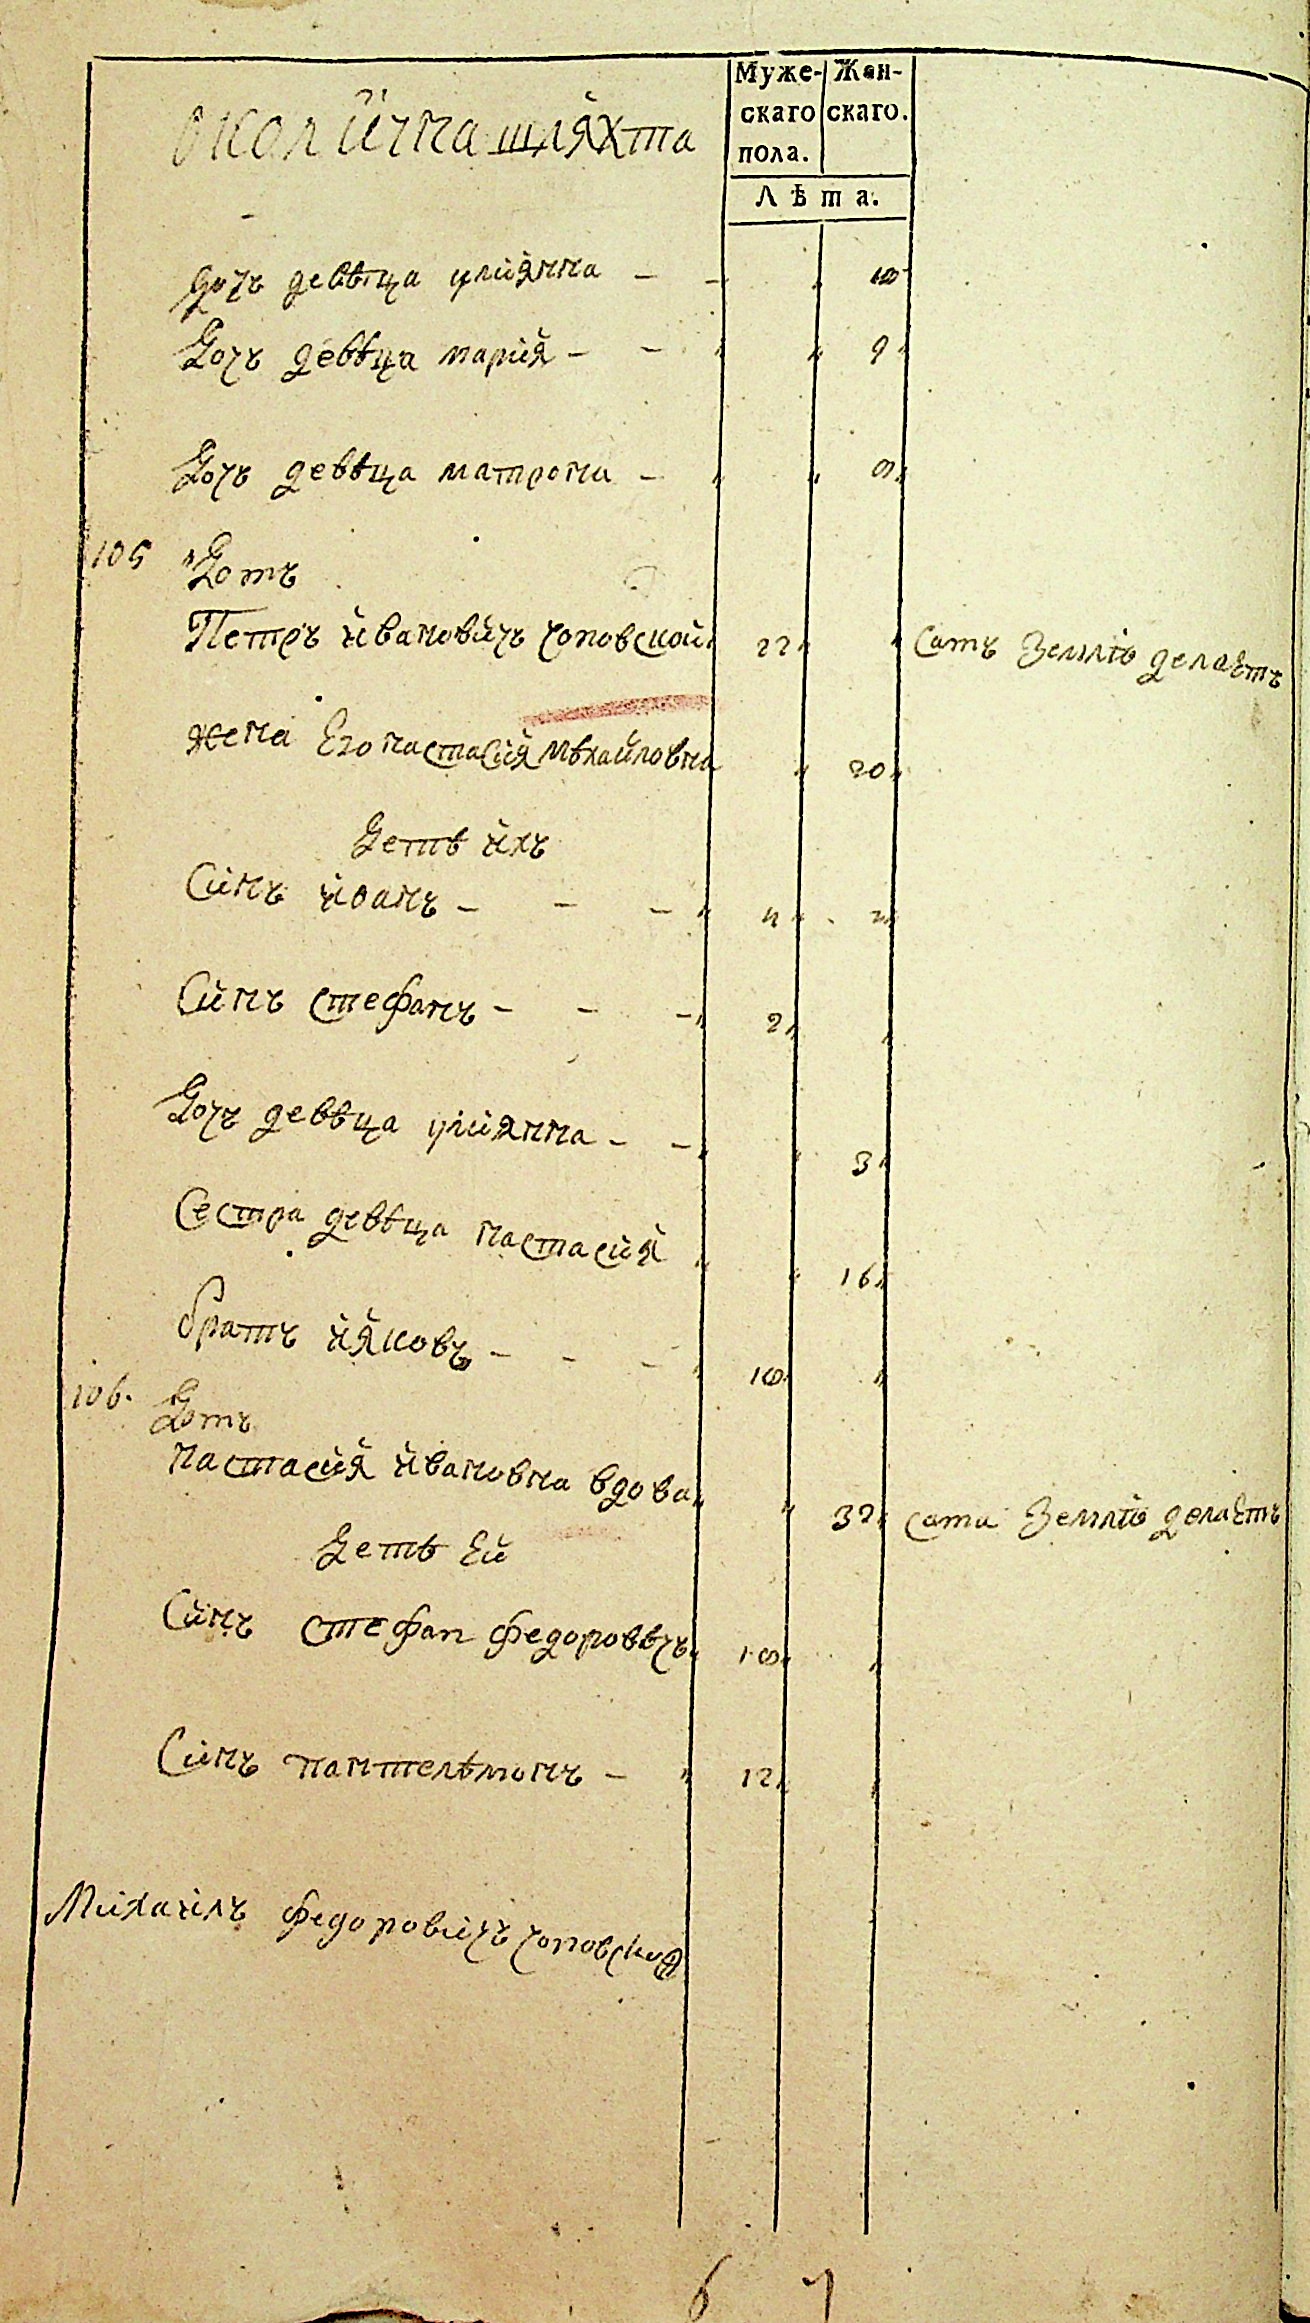 Муже- Жен-
скаго скаго.
пола.
Лѣта.
околична шляхта
Дочъ девѣца улиянна - - " 10
Дочъ девѣца мария - - " " 9 "
Дочъ девѣца матрона - " " 9 "
105 Домъ
Петръ ивановичъ чоповской 22 " " самъ землю делаетъ
жена Его настасия мѣхайловна " 20 "
Детѣ ихъ
Синъ иванъ - - - " 4 "
Синъ стефанъ - - - " 2 " "
Дочъ девѣца улиянна - - " " 3 "
Сестра девѣца настасия " " 16 "
братъ ияковъ - - - " 10 "
106. Домъ
настасия ивановна вдова " " 32 " сама землю делаетъ
Детѣ Ей
Синъ стефан федоровѣчъ " 18 " "
Синъ пантелѣмонъ - " 12 " "
Михаилъ федоровичъ чоповский
6 7